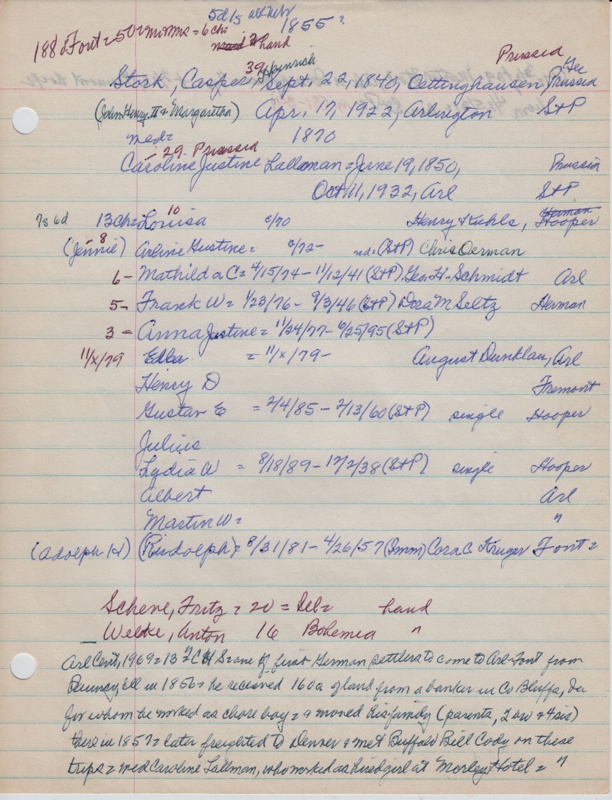 5d/5
1855?
1880 Font = 50 = = 6 chs
hand
39 Heinrich Prussia
Stork, Casper, Sept. 22, 1840, Oettinghausen, Prussia
(John Henry II & Margaretha) Apr. 17, 1922, Arlington StP
md= 1870
- 29. Prussia
Caroline Justine Lallman = June 19, 1850, Prussia
Oct 11, 1932, Arl StP
7s 6d 13 ch = Louisa 10 c/70 Henry Kuhls, Hooper
(Jennie) 8 Arline Gustine = c/72- md= (StP) Chris Oerman
6 - Mathilda C = 4/15/74 - 11/12/41 (StP) Geo. H. Schmidt Arl
5 - Frank W = 1/23/76 - 9/3/46 (StP) Dora M Seltz Herman
3 = Anna Justine = 11/24/77 - 6/25/95 (StP)
11/x/79 Edla = 11/x/79 - August Dunklau, Arl
Henry D Fremont
Gustav E = 2/4/85 - 2/13/60 (StP) single Hooper
Julius
Lydia W = 8/18/89 - 12/2/38 (StP) single Hooper
Albert Arl
Martin W = "
(Adolph H) (Rudolph) = 8/31/81 - 4/26/57 (Imm) Cora C. Kruger Font =
Schene, Fritz = 20 = = hand
Welke, Anton 16 Bohemia "
Arl Cent, 1969 = 13 = C H S = one of first German settlers to come to Arl-Font from
Ill in 1856 = he received 160a of land from a banker in Co Bluffs, Ia
for whom he worked as chore boy = & moved his family (parents, 2 bro & 4 sis)
there in 1857 = later freighted to Denver & met Buffalo Bill Cody on these
trips = md Caroline Lallman, who worked as hired girl at Morley Hotel = "